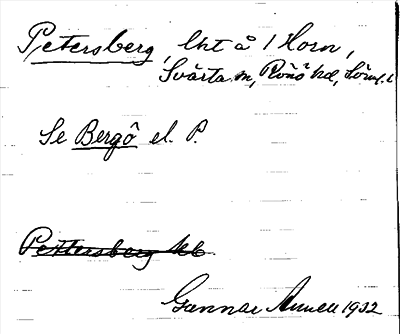 Petersberg, lht å 1 Horn,
Svärta sn, Rönö hd, Sörml. l
Se Bergö el. P.
Pettersberg hb
Gunnar Annell 1932